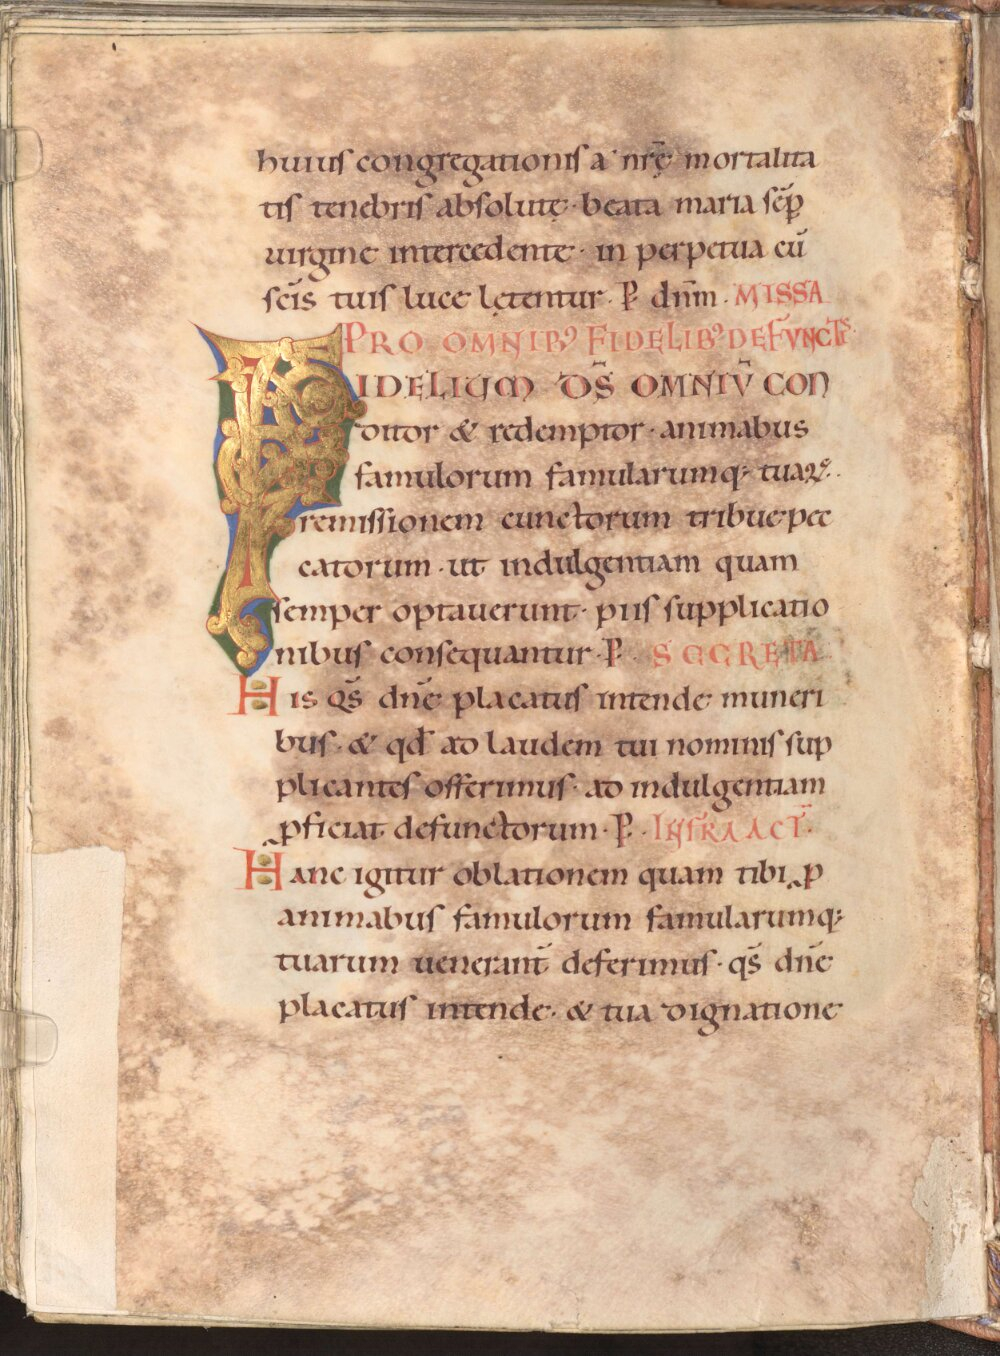 huius congregationis a nr̄ę mortalita
tis tenebris absolutę· beata maria sēp̄
uirgine intercedente· in perpetua cū
sc̄is tuis luce lętentur· P̄ dn̄m· MISSA
PRO OMNIBꝰ FIDELIBꝰ DEFVNCTIS·
FIDELIUM D̄S OMNIŪ CON
ditor & redemptor· animabus
famulorum famularumq; tuaꝝ·
remissionem cunctorum tribue pec
catorum· ut indulgentiam quam
semper optauerunt· piis supplicatio
nibus consequantur· P̄· SECRETA
His q̄s dn̄e placatus intende muneri
bus· & qd̄ ad laudem tui nominis sup
plicantes offerimus· ad indulgentiam
ꝓficiat defunctorum· P̄· INFRA ACT̄·
Hanc igitur oblationem quam tibi ꝓ
animabus famulorum famularumq;
tuarum uenerant̄ deferimus· q̄s dn̄e
placatus intende· & tua dignatione